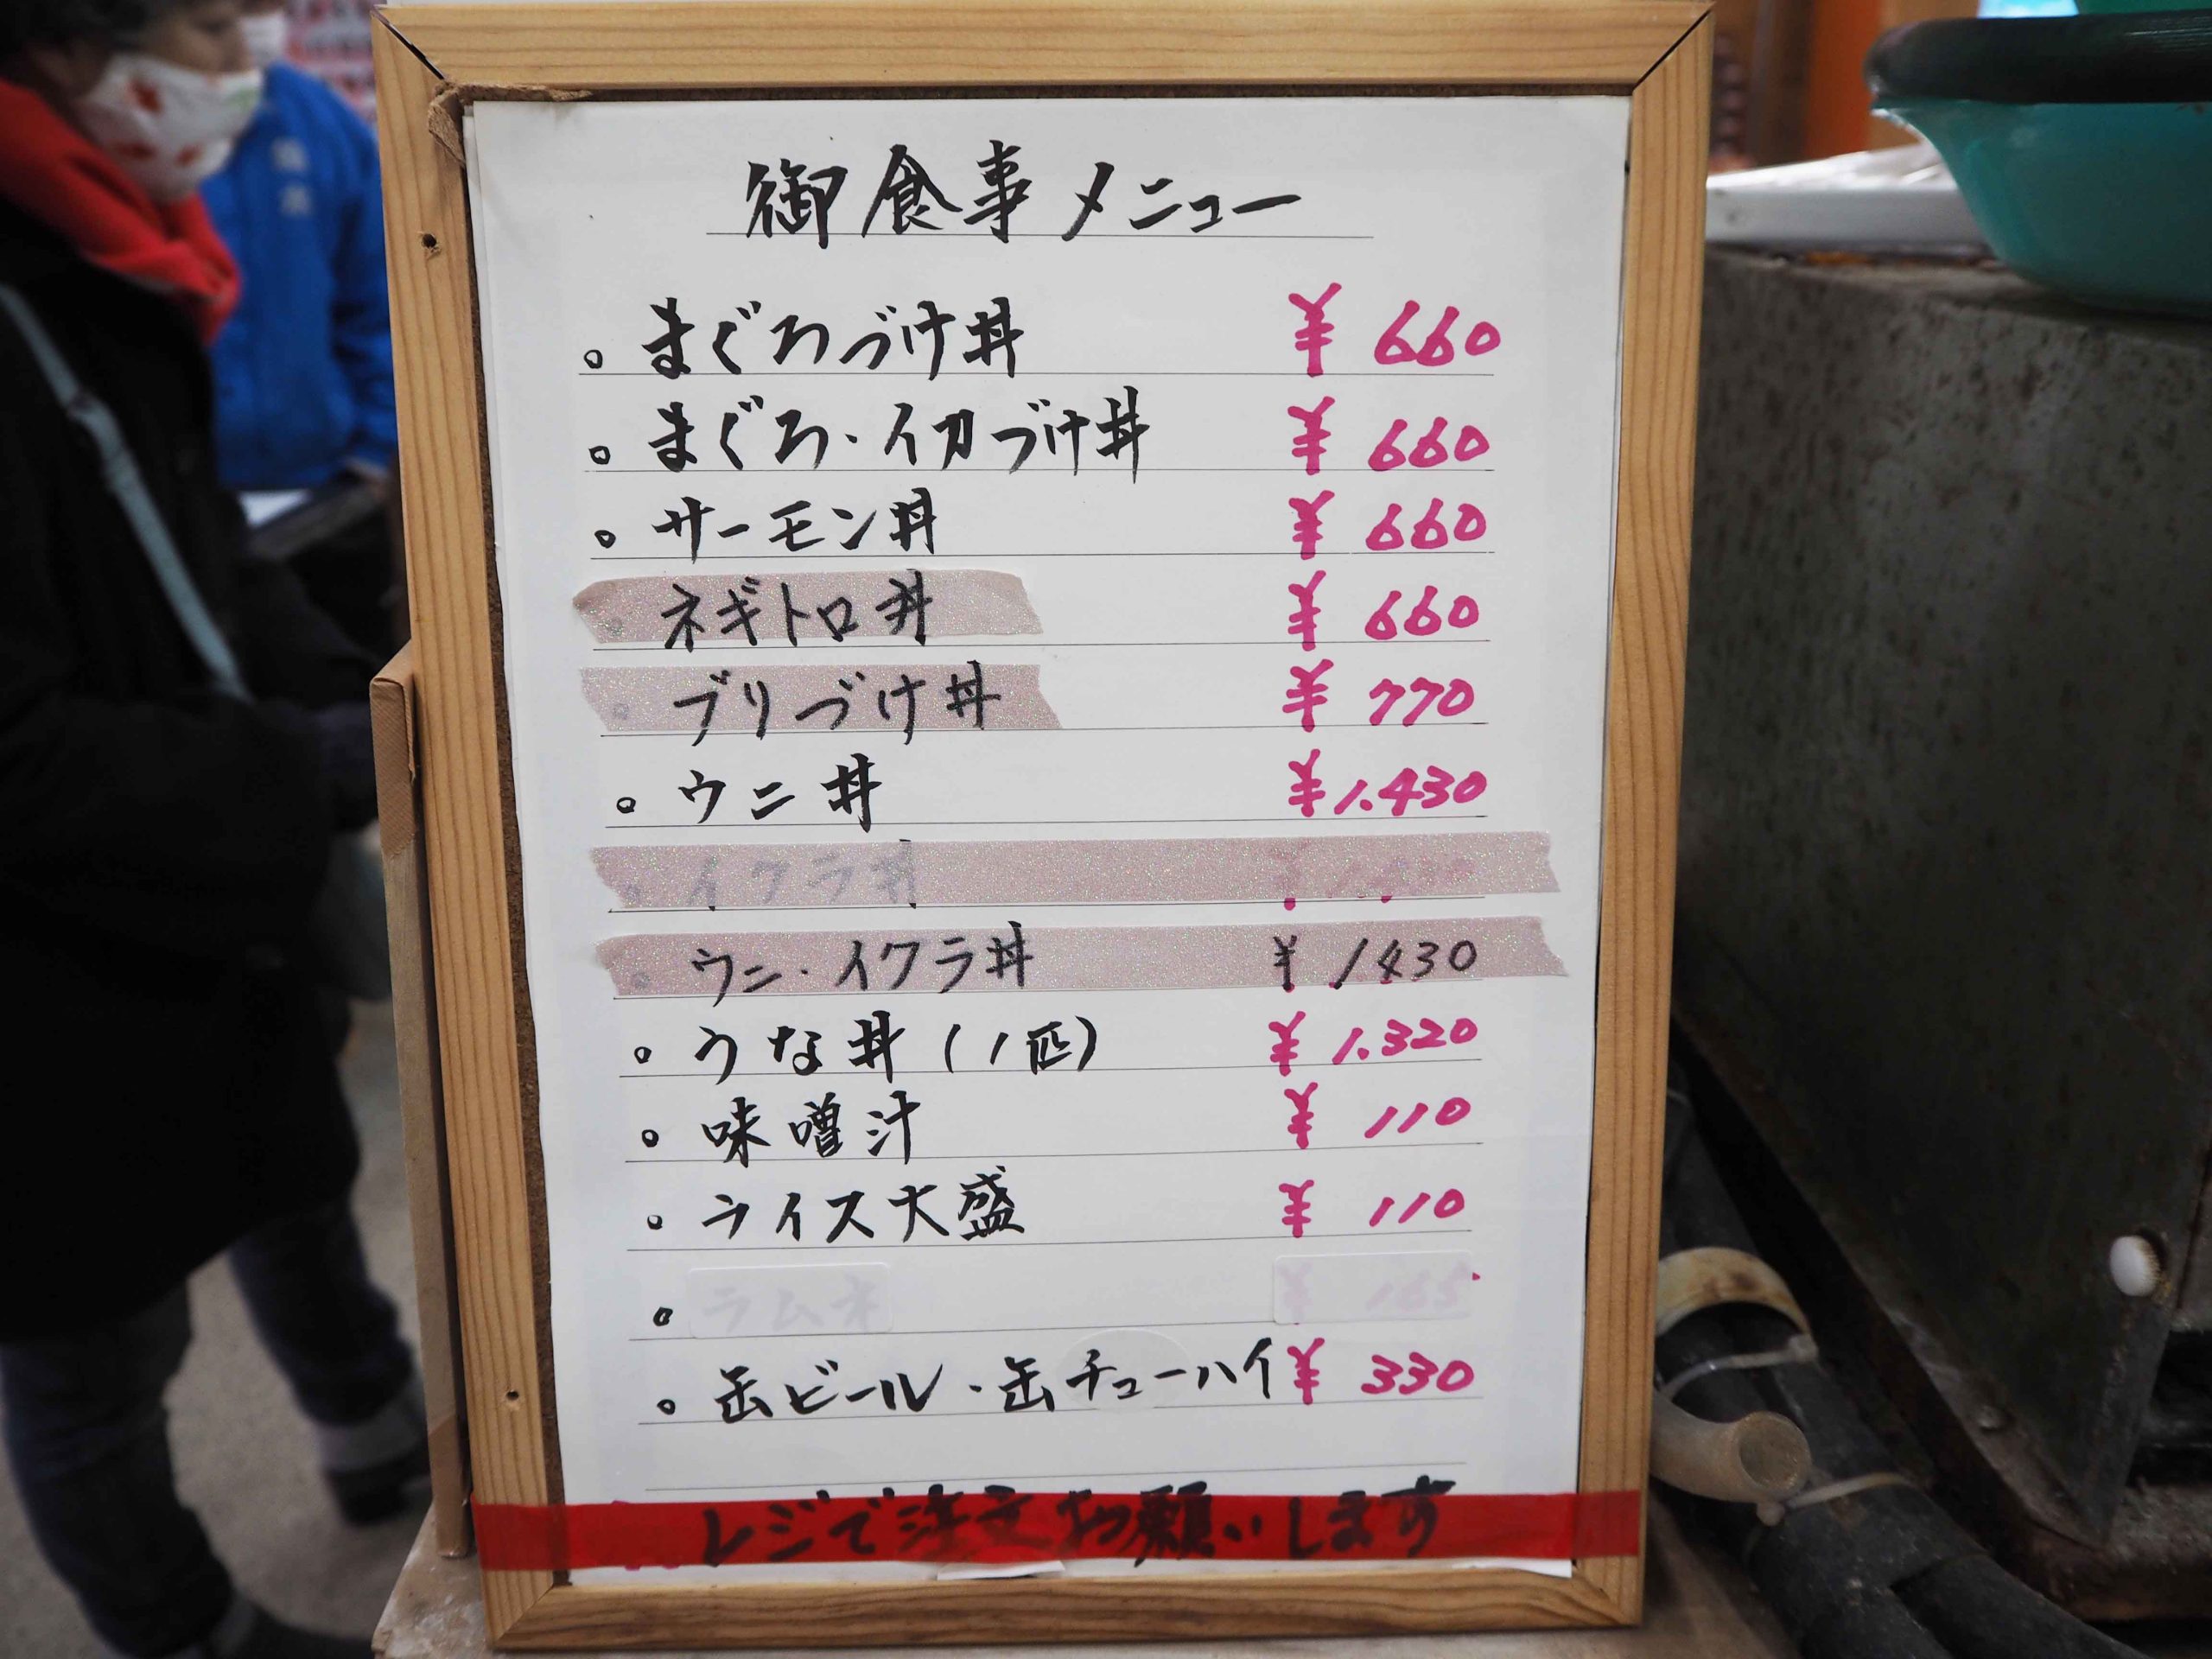 御食事メニュー
。まぐろづけ丼 ¥660
。まぐろ・イカづけ丼 ¥660
。サーモン丼 ¥660
。ネギトロ丼 ¥660
。ブリづけ丼 ¥770
。ウニ丼 ¥1.430
。イクラ丼 ¥1.430
。ウニ・イクラ丼 ¥1430
。うな丼(1匹) ¥1.320
。味噌汁 ¥110
。ライス大盛 ¥110
。ラムネ ¥165
。缶ビール・缶チューハイ ¥330
レジで注文お願いします